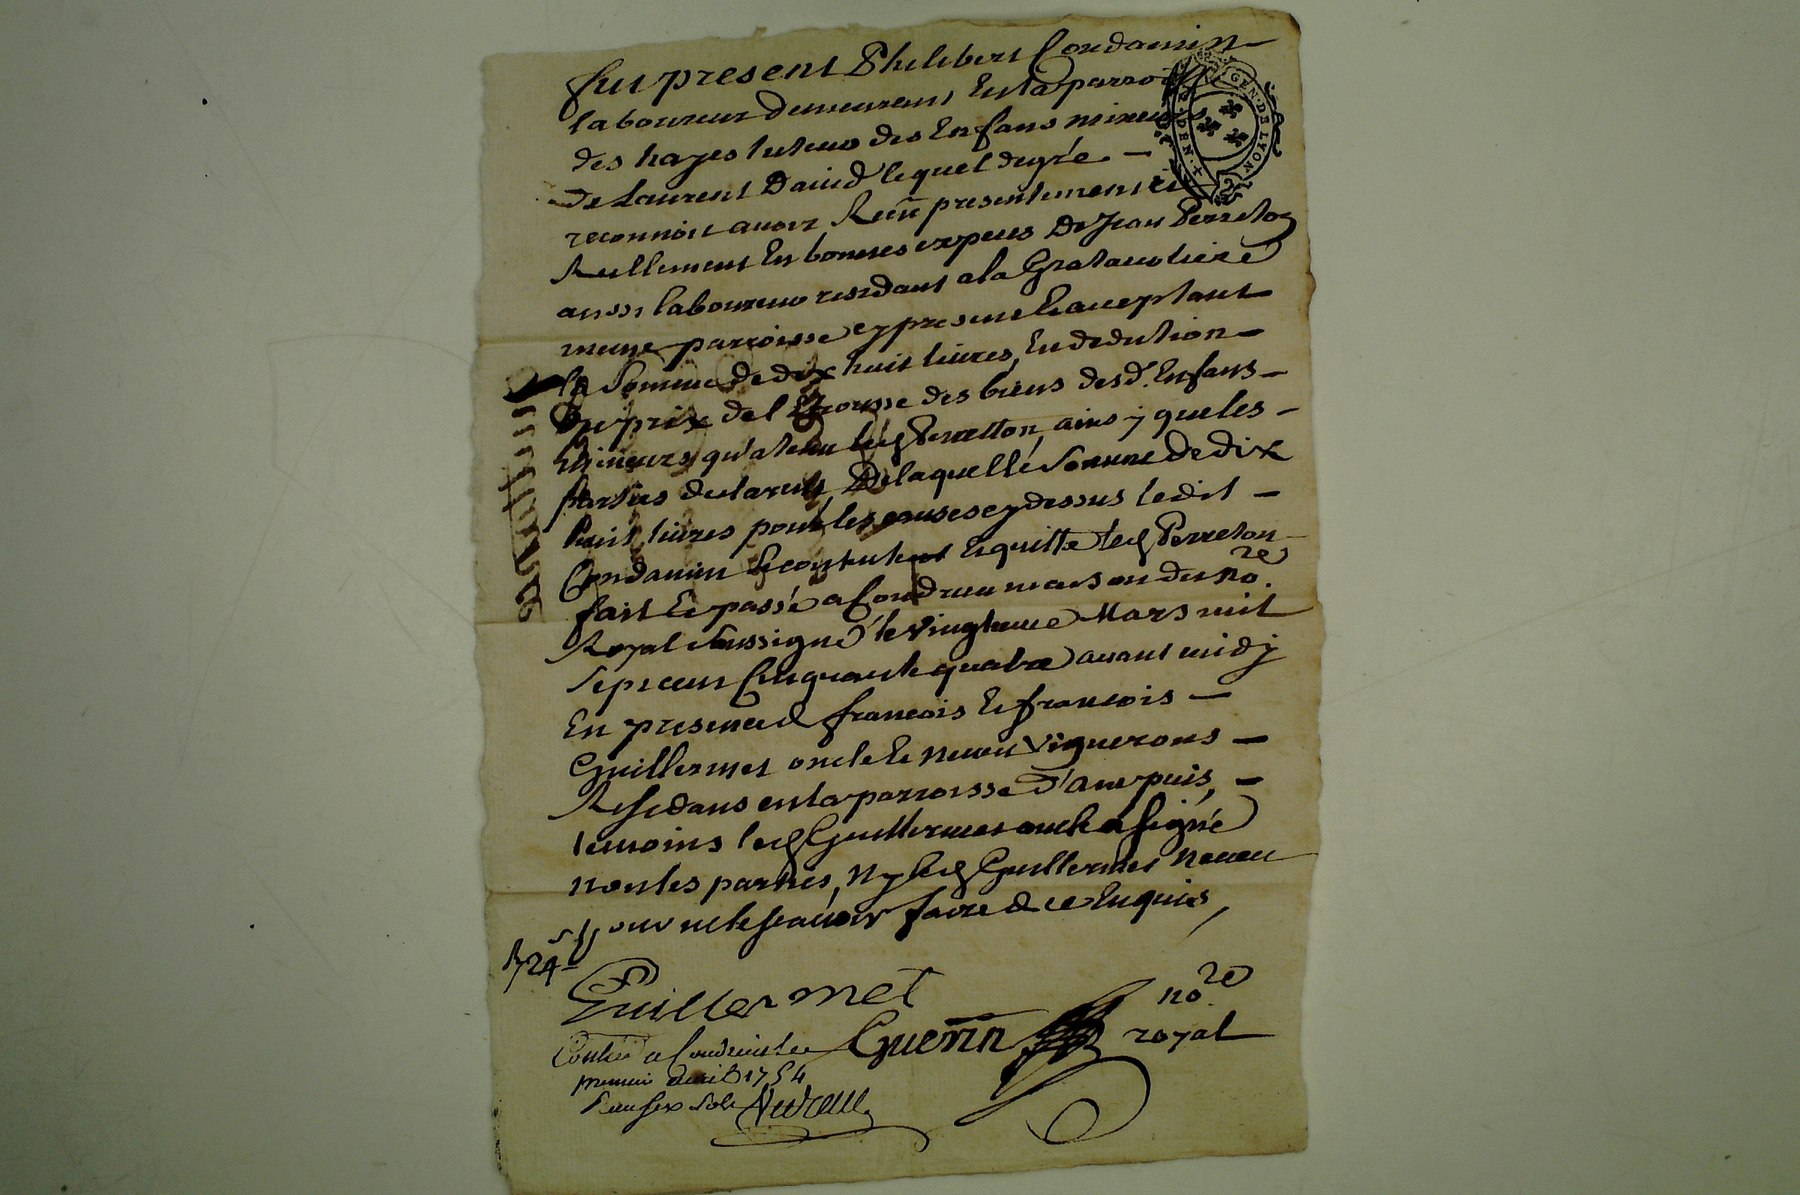 fut present Philibert Condamin
laboureur demeurant En la parroisse
des hayes tuteur des Enfans mineurs
de Laurent David lequel degré
reconnoit avoir Receu presentement et
Reellement En bonnes especes De Jean Perreton
aussi laboureur residant a la Grataudiere
meme parroisse cy present Et acceptant
la Somme de dix huit livres, En deduction
du prix de l'Etrousse des biens desd. Enfans
Mineurs qu'a tenu led Perretton, ainsy que les
parties declarent, De laquelle Somme de dix
huit livres pour les causes cy dessus ledit
Condamin Se contente et En quitte led Perreton
fait Et passé a Condrieu maison du no.re
Royal Soussigné le vingt Mars mil
Sept cent Cinquante quatre avant midy
En presence de francois Et francois
Guillermet oncle Et neveu Vignerons
Residans en la parroisse d'ampuis,
temoins led Guillermet oncle a signé
non les parties, Ny led Guillermet Neveu
pour ne le scavoir faire de ce Enquis,
Guillermet
Guerin no.re
royal
Contrôlé a Condrieu le
premier avril 1754
Reçu six sols
GEN. DE LYON